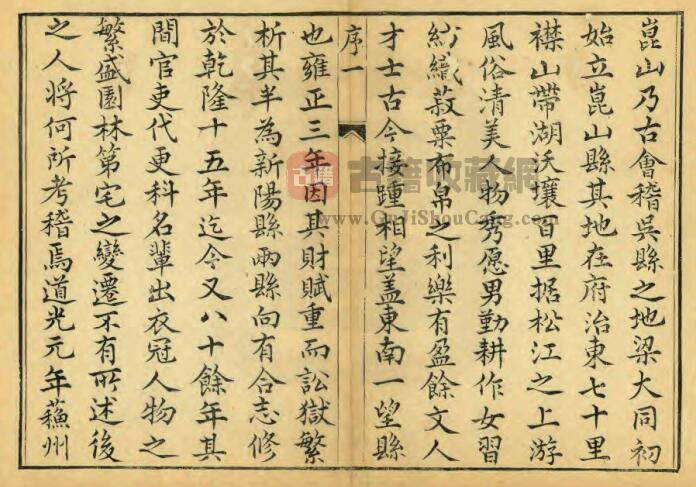 崑山乃古會稽吳縣之地梁大同初
始立崑山縣其地在府治東七十里
襟山帶湖沃壤百里据松江之上游
風俗清美人物秀愿男勤耕作女習
紡織菽粟布帛之利樂有盈餘文人
才士古今接踵相望盖東南一望縣
序一
也雍正三年因其財賦重而訟獄繁
析其半為新陽縣兩縣向有合志修
於乾隆十五年迄今又八十餘年其
間官吏代更科名輩出衣冠人物之
繁盛園林第宅之變遷不有所述後
之人將何所考稽焉道光元年蘓州
古籍
古籍收藏網
www.GuJiShouCang.com